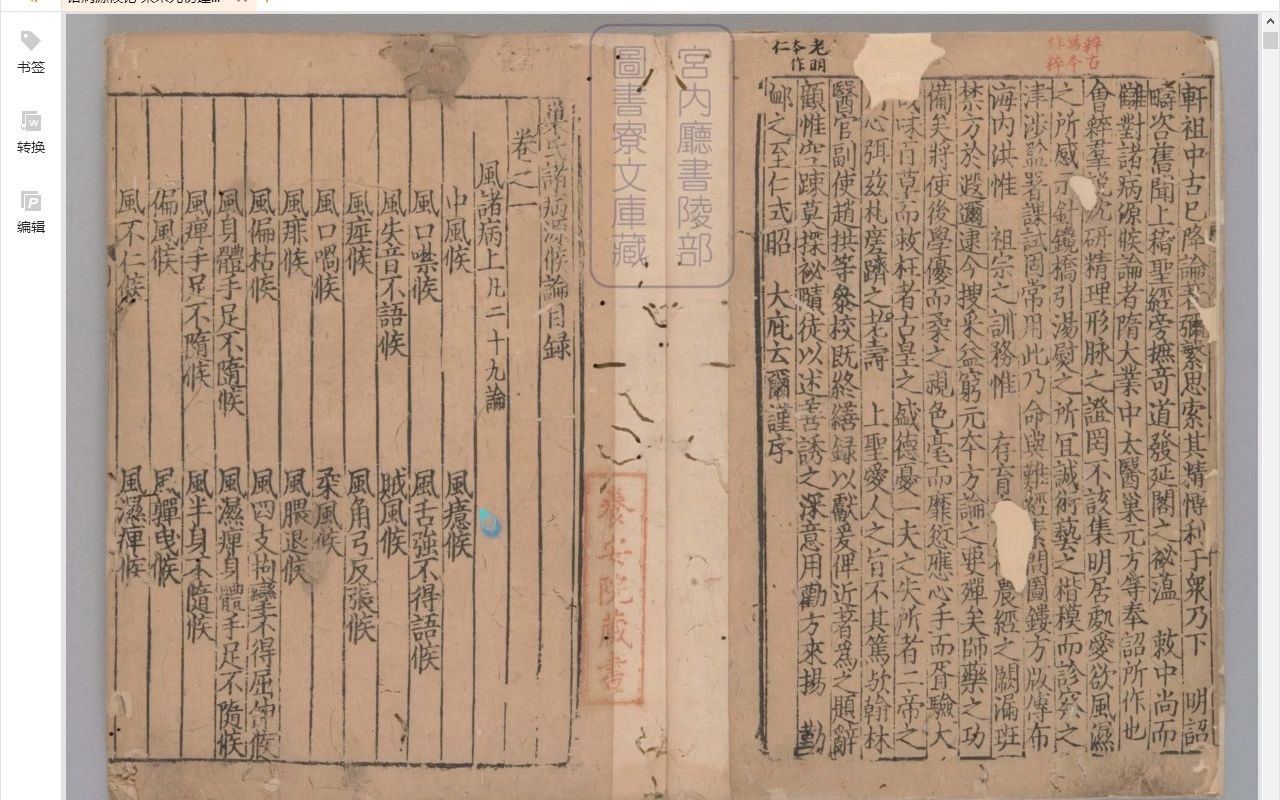 书签
转换
编辑
老明
本作
仁
粹古
寫本
作粹
軒祖中古已降論著彌繁思索其精博利于衆乃下 明詔
疇咨舊聞上稽聖經旁摭奇道發延閣之祕蘊 敕中尚而
讎對諸病源候論者隋大業中太醫巢元方等奉詔所作也
會粹羣說沉研精理形脉之證罔不該集明居處愛欲風濕
之所感示針鑱橋引湯熨之所宜誠術藝之楷模而診察之
津涉監署課試固常用此乃命與難經素問圖鏤方版傳布
海内洪惟 祖宗之訓務惟 存育 農經之闕漏班
禁方於遐邇逮今搜采益窮元本方論之要殫矣師藥之功
備矣將使後學優而柔之視色毫而靡愆應心手而胥驗大
味百草而救枉者古皇之盛德憂一夫之失所者二帝之
心弭茲札瘥躋之老壽 上聖愛人之旨不其篤歟翰林
醫官副使趙拱等叅校既終繕録以獻爰俾近著爲之題辭
顧惟空疎莫探祕賾徒以述善誘之深意用勸方來揚 勤
卹之至仁式昭 大庇云爾謹序
宮内廳書陵部
圖書寮文庫藏
養安院藏書
巢氏諸病源候論目録
卷之一
風諸病上凡二十九論
中風候 風癔候
風口噤候 風舌強不得語候
風失音不語候 賊風候
風痓候 風角弓反張候
風口喎候 柔風候
風痱候 風腲退候
風偏枯候 風四支拘攣不得屈伸候
風身體手足不隨候 風濕痺身體手足不隨候
風痺手足不隨候 風半身不隨候
偏風候 風嚲曳候
風不仁候 風濕痺候